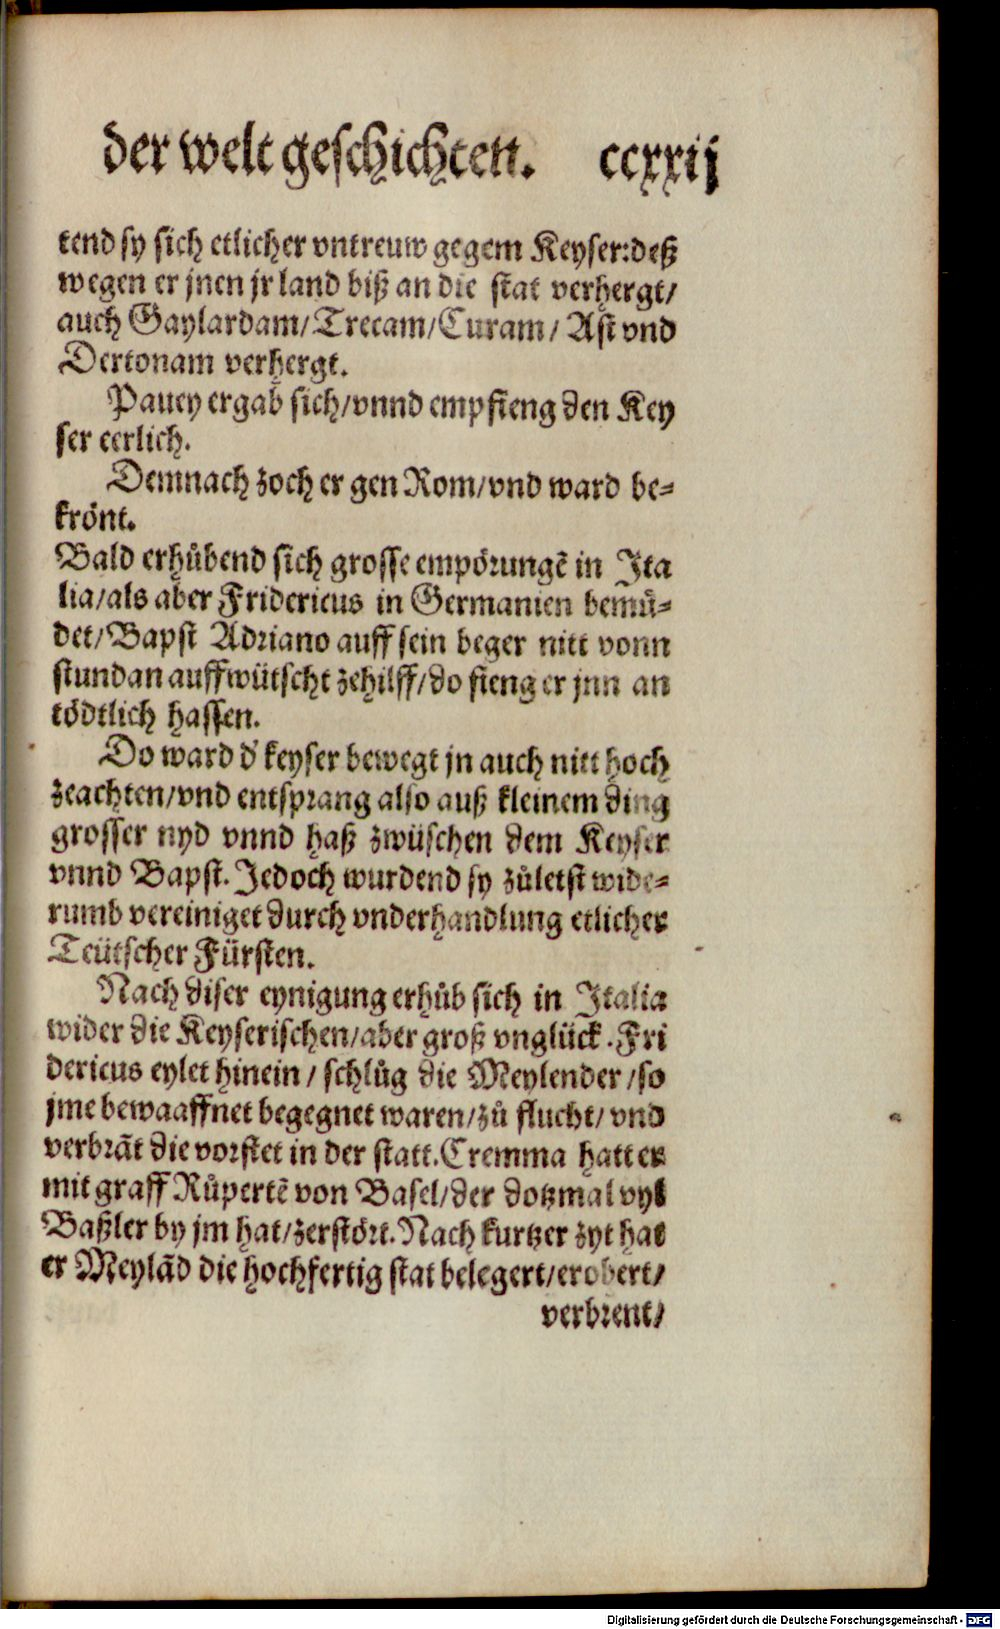 der welt geschichten. ccxxij
tend sy sich etlicher vntreuw gegem Keyser:deß
wegen er jnen jr land biß an die stat verhergt/
auch Gaylardam/Trecam/Curam/ Ast vnd
Dertonam verhergt.
Pauey ergab sich/vnnd empfieng den Key
ser eerlich.
Demnach zoch er gen Rom/vnd ward be⸗
krönt.
Bald erhůbend sich grosse empörungē in Ita
lia/als aber Fridericus in Germanien bemü⸗
det/Bapst Adriano auff sein beger nitt vonn
stundan auffwütscht zehilff/do fieng er jnn an
tödtlich hassen.
Do ward d' keyser bewegt jn auch nitt hoch
zeachten/vnd entsprang also auß kleinem ding
grosser nyd vnnd haß zwüschen dem Keyser
vnnd Bapst. Jedoch wurdend sy zůletst wide⸗
rumb vereiniget durch vnderhandlung etlicher
Teütscher Fürsten.
Nach diser eynigung erhůb sich in Italia
wider die Keyserischen/aber groß vnglück. Fri
dericus eylet hinein/ schlůg die Meylender/so
jme bewaaffnet begegnet waren/zů flucht/vnd
verbrāt die vorstet in der statt. Cremma hatt er
mit graff Růpertē von Basel/der dotzmal vyl
Baßler by jm hat/zerstört. Nach kurtzer zyt hat
er Meylād die hochfertig stat belegert/erobert/
verbrent/
Digitalisierung gefördert durch die Deutsche Forschungsgemeinschaft - DFG